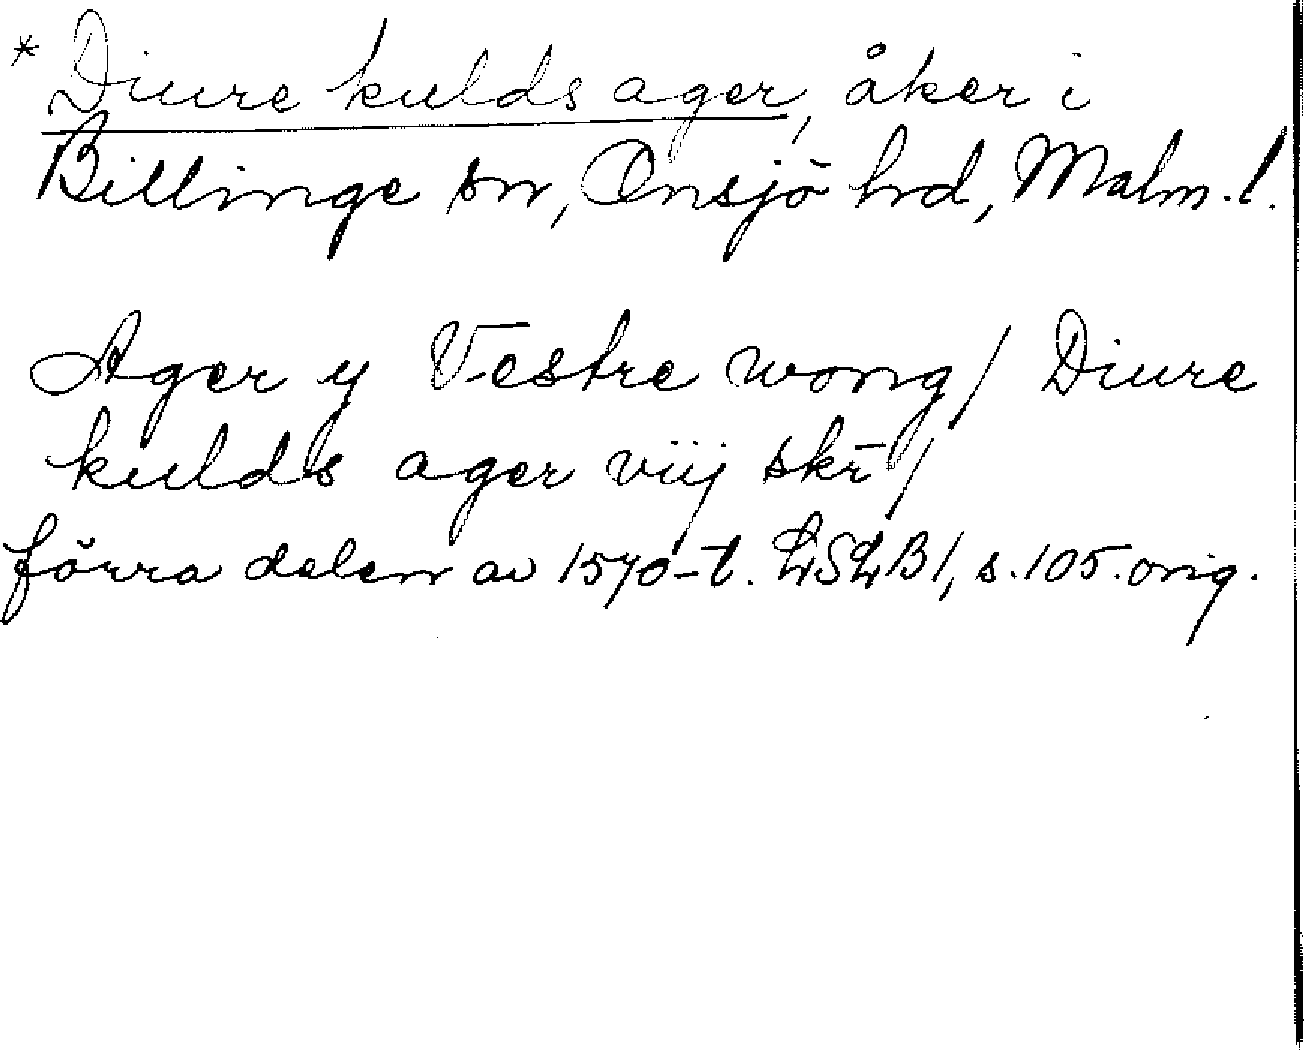 * Diure kulds ager, åker i
Billinge sn, Onsjö hd, Malm. l.
Ager y Vestre wong / Diure
kulds ager viij skr̄ /
förra delen av 1570-t. LSLB 1, s. 105. orig.